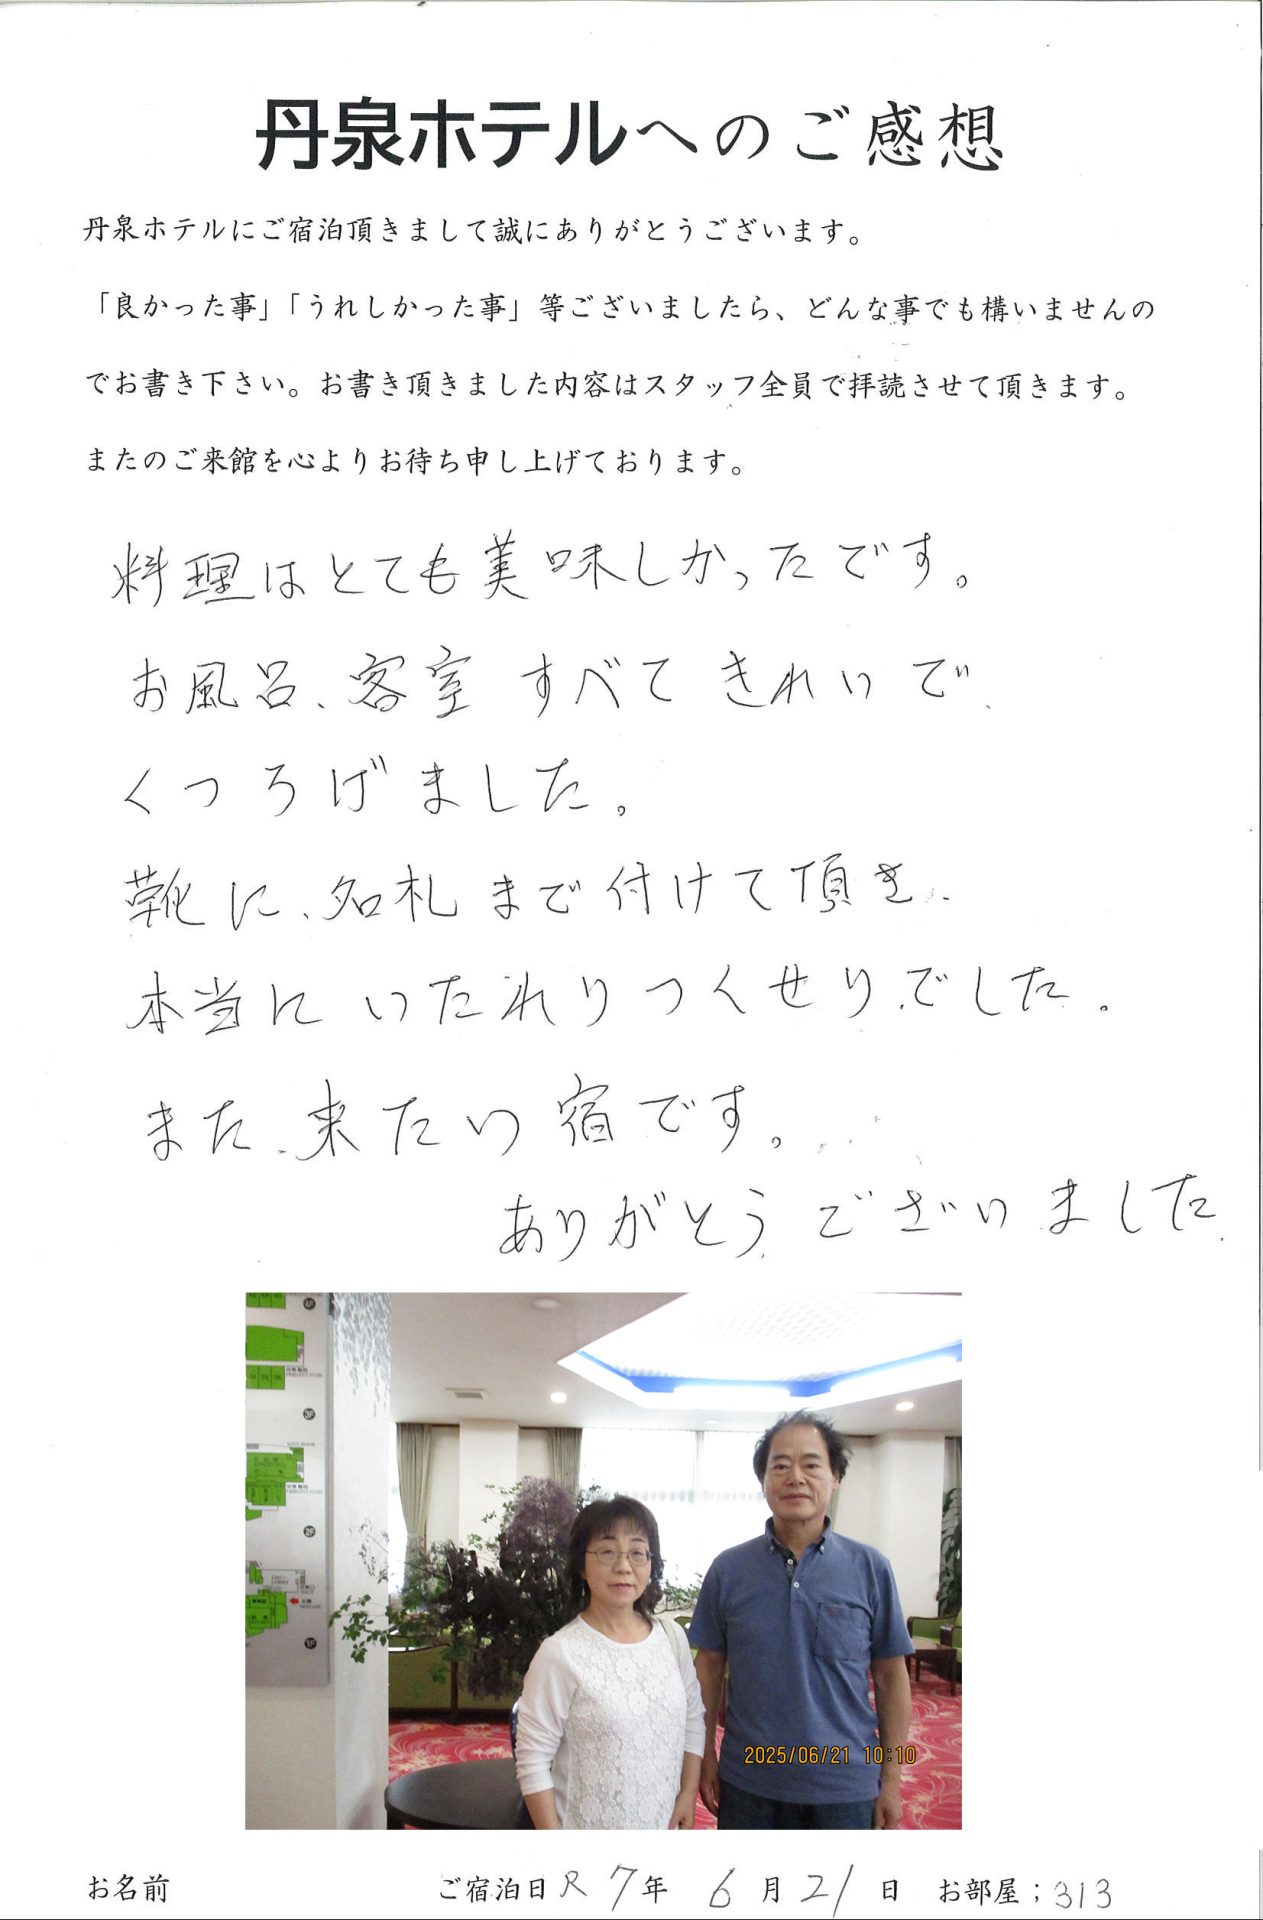 丹泉ホテルへのご感想
丹泉ホテルにご宿泊頂きまして誠にありがとうございます。
「良かった事」「うれしかった事」等ございましたら、どんな事でも構いませんの
でお書き下さい。お書き頂きました内容はスタッフ全員で拝読させて頂きます。
またのご来館を心よりお待ち申し上げております。
料理はとても美味しかったです。
お風呂、客室 すべて きれいで、
くつろげました。
靴に、名札まで付けて頂き、
本当に いたれりつくせりでした。
また、来たい宿です。
ありがとう ございました
3F
2F
1F
2025/06/21 10:10
お名前 ご宿泊日 R7年 6月21日 お部屋；313